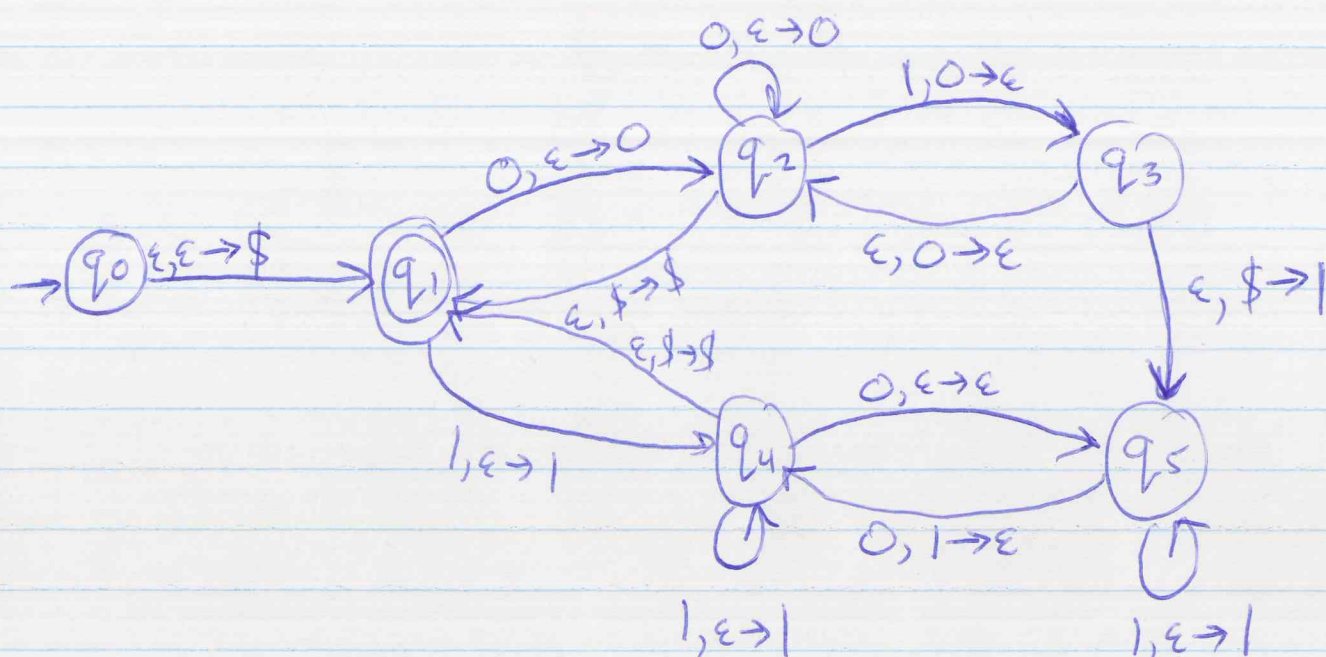 0,ε→0
1,0→ε
q2
q3
0,ε→0
ε,0→ε
q0
ε,ε→$
q1
ε,$→$
ε,$→1
ε,$→$
0,ε→ε
1,ε→1
q4
q5
0,1→ε
1,ε→1
1,ε→1